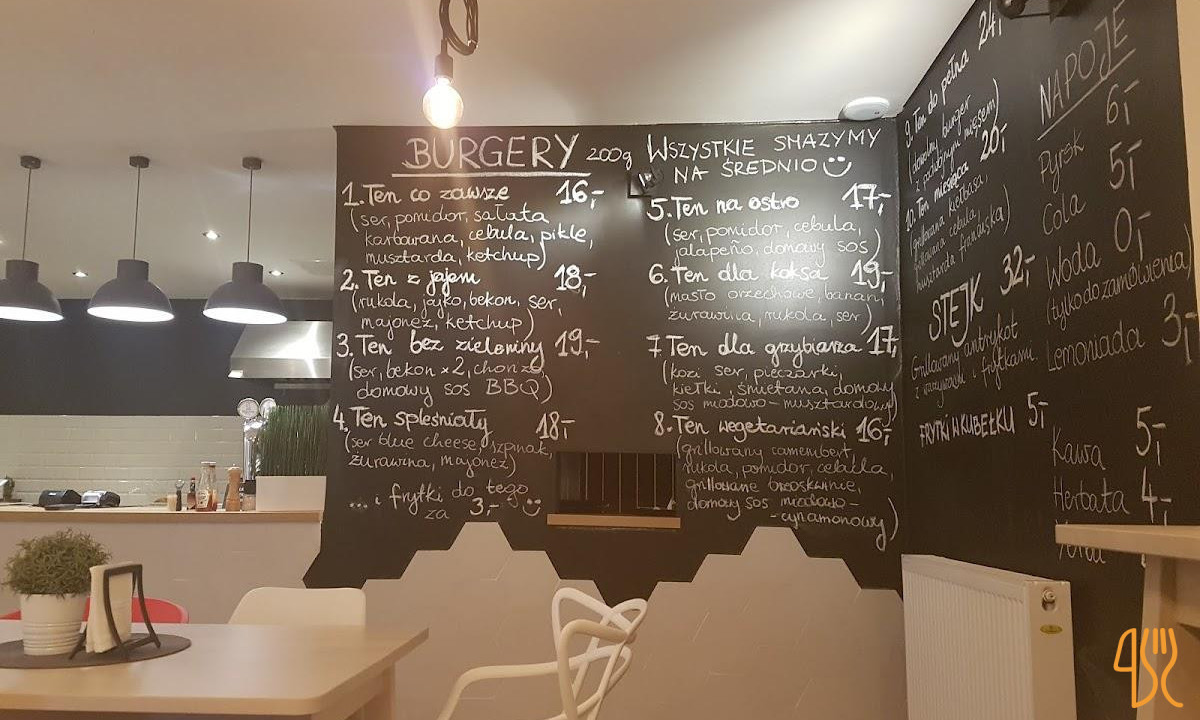 BURGERY 200g
1. Ten co zawsze 16,-
(ser, pomidor, sałata
karbowana, cebula, pikle,
musztarda, ketchup)
2. Ten z jajem 18,-
(rukola, jajko, bekon, ser,
majonez, ketchup)
3. Ten bez zieleniny 19,-
(ser, bekon x2, chorizo,
domowy sos BBQ)
4. Ten spleśniały 18,-
(ser blue cheese, szpinak,
żurawina, majonez)
... i frytki do tego
za 3,-
WSZYSTKIE SMAŻYMY
NA ŚREDNIO
5. Ten na ostro 17,-
(ser, pomidor, cebula,
jalapeño, domowy sos)
6. Ten dla koksa 19,-
(masło orzechowe, banan,
żurawina, rukola, ser)
7 Ten dla grzybiarza 17,-
(kozi ser, pieczarki,
kiełki, śmietana, domowy
sos miodowo-musztardowy)
8. Ten wegetariański 16,-
(grillowany camembert,
rukola, pomidor, cebula,
grillowane brzoskwinie,
domowy sos miodowo-
-cynamonowy)
9. Ten do pełna 24,-
(dowolny burger
z podwójnym mięsem)
10. Ten miesiąca 20,-
(grillowana kiełbasa,
grillowana cebula,
musztarda francuska)
STEJK 32,-
Grillowany antrykot
z warzywami i frytkami
FRYTKI W KUBEŁKU 5,-
NAPOJE
Pyrsk 6,-
Cola 5,-
Woda 0,-
(tylko do zamówienia)
Lemoniada 3,-
Kawa 5,-
Herbata 4,-